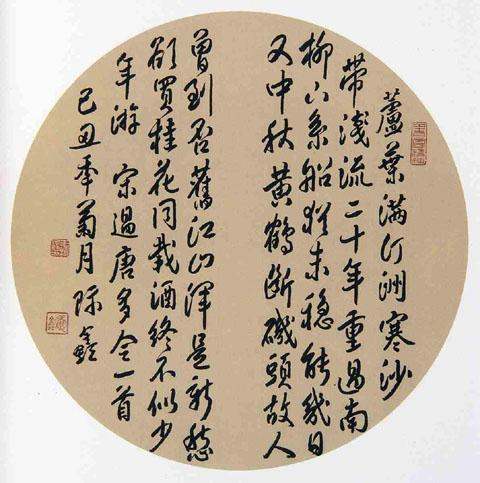 蘆葉滿汀洲寒沙
帶淺流二十年重過南
柳下系船猶未穩能幾日
又中秋黃鶴斷磯頭故人
曾到否舊江山渾是新愁
欲買桂花同載酒終不似少
年游 宋過唐多令一首
己丑年菊月